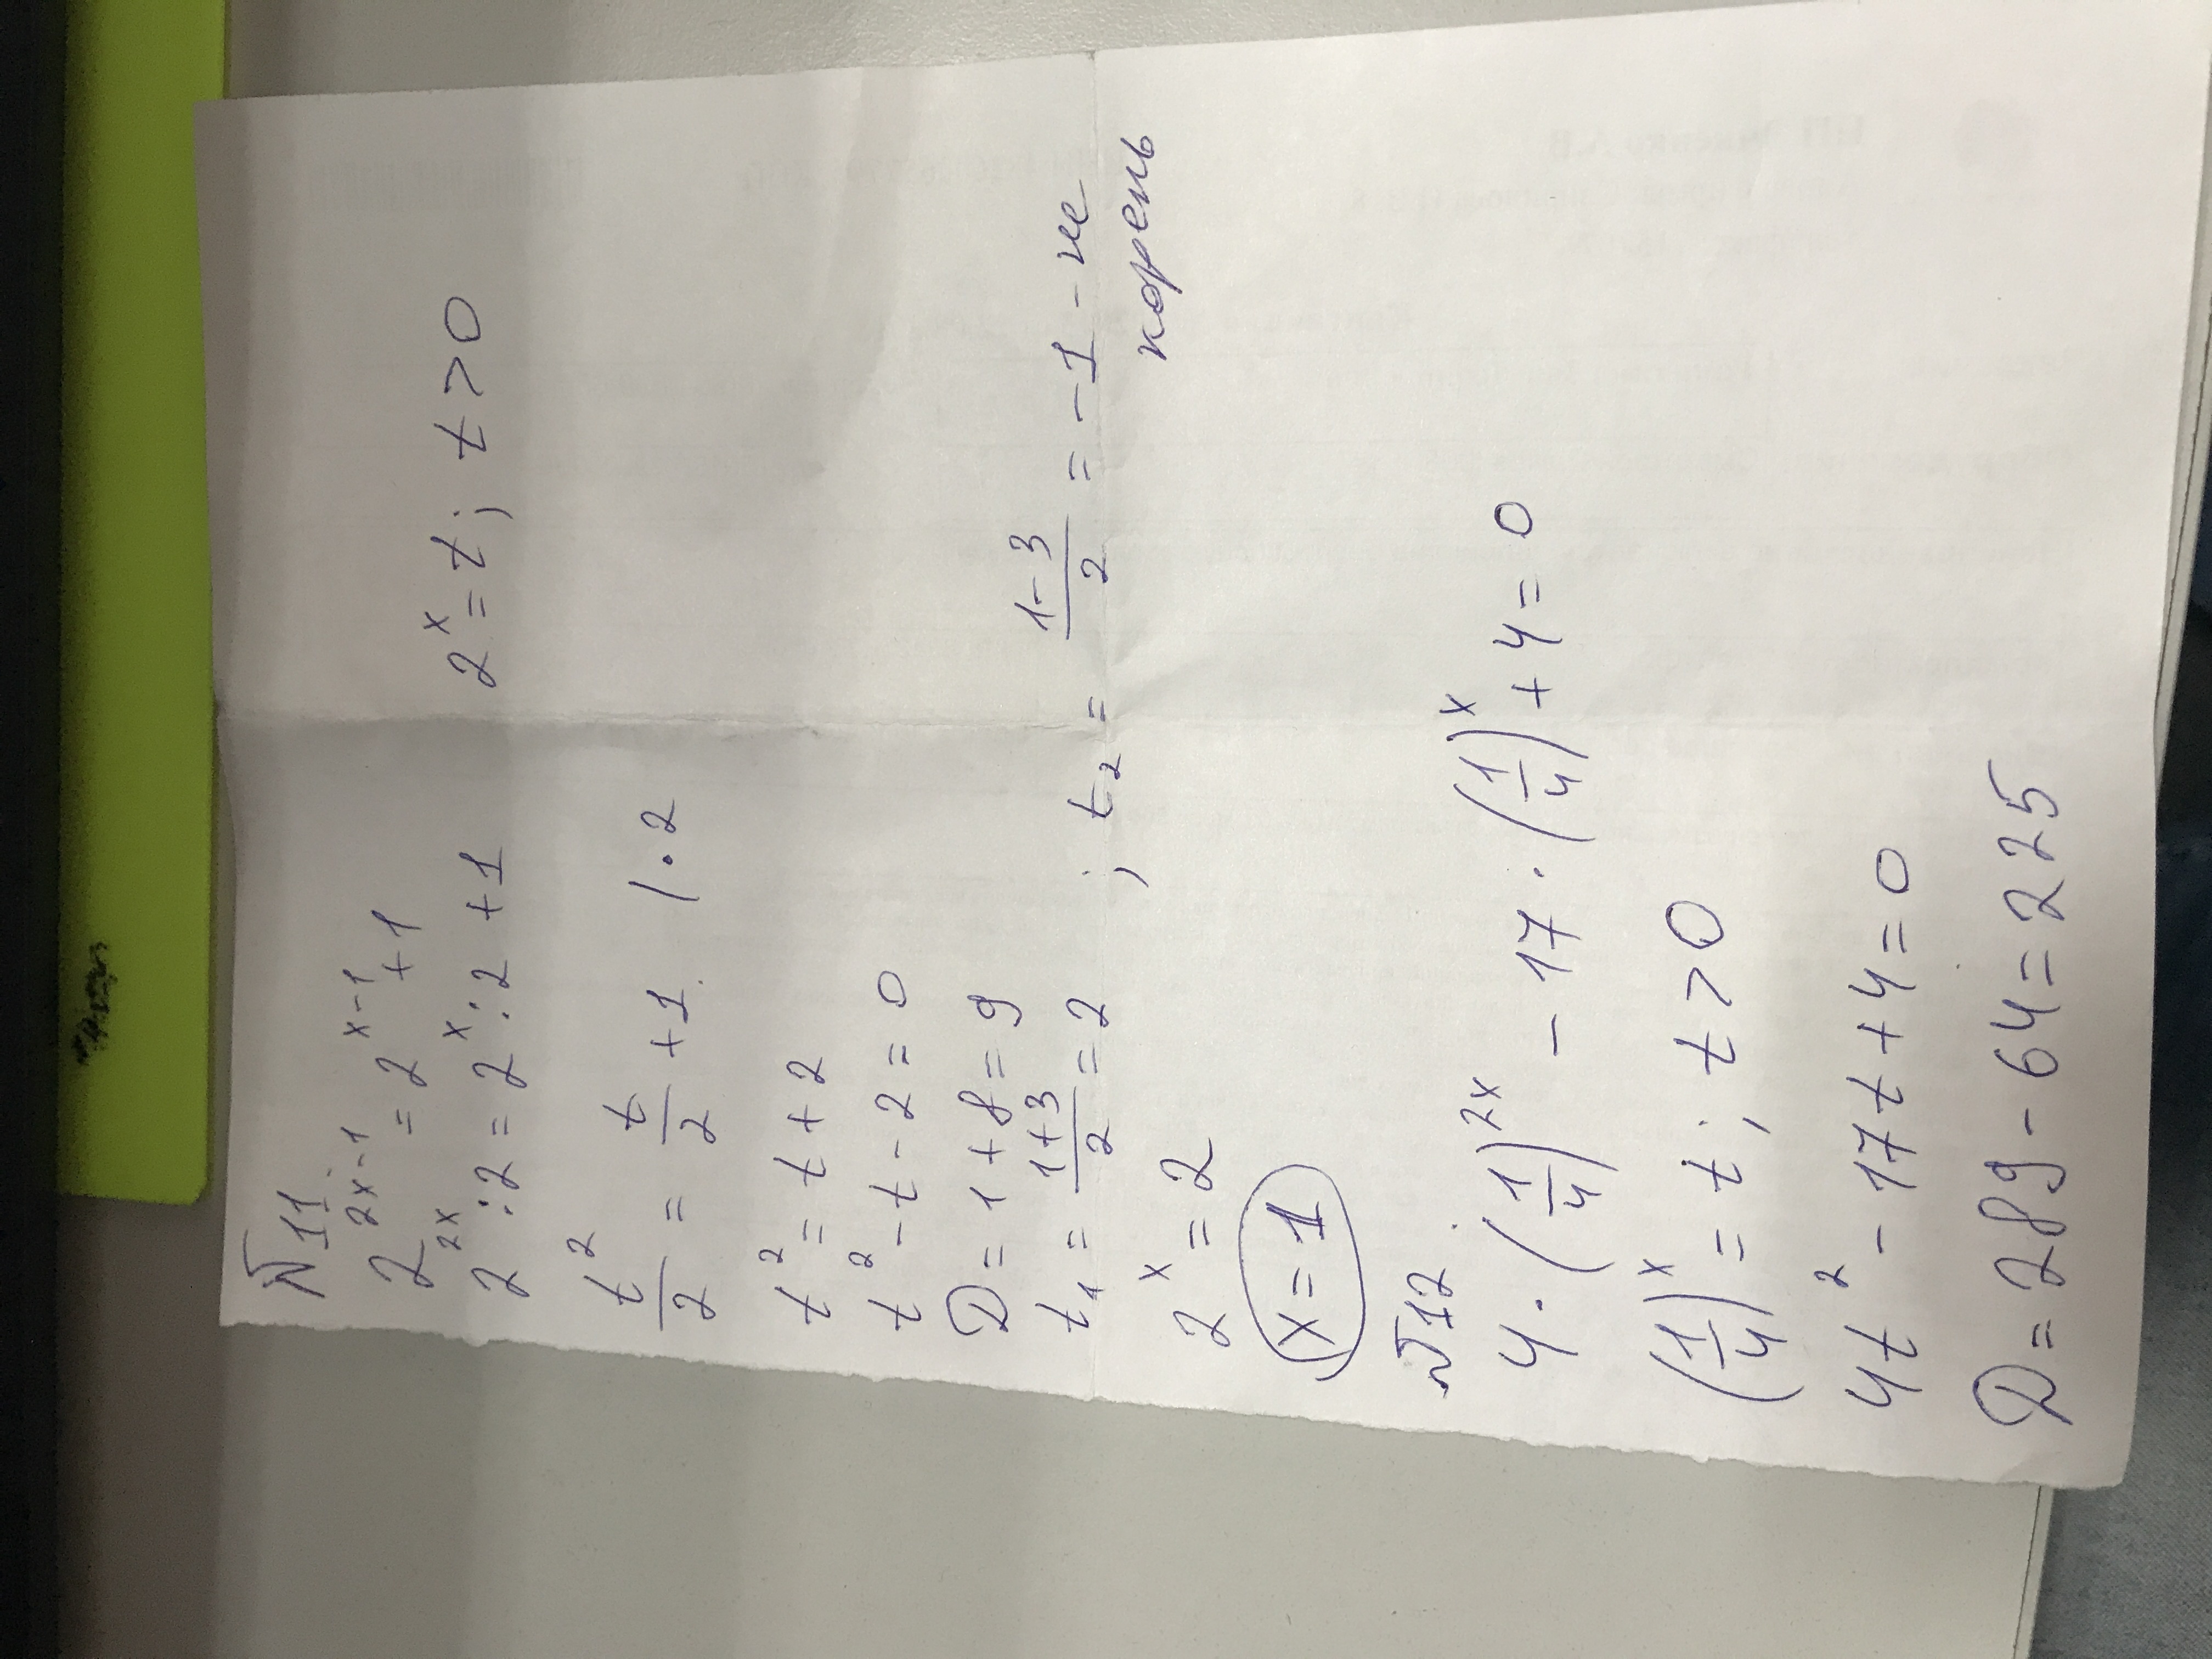 №11
2^{2x-1} = 2^{x-1} + 1
2^{2x} : 2 = 2^x : 2 + 1
2^x = t; t > 0
t^2/2 = t/2 + 1 | · 2
t^2 = t + 2
t^2 - t - 2 = 0
D = 1 + 8 = 9
t_1 = (1+3)/2 = 2 ; t_2 = (1-3)/2 = -1 - не
корень
2^x = 2
x = 1
№12
4 · (1/4)^{2x} - 17 · (1/4)^x + 4 = 0
(1/4)^x = t; t > 0
4t^2 - 17t + 4 = 0
D = 289 - 64 = 225